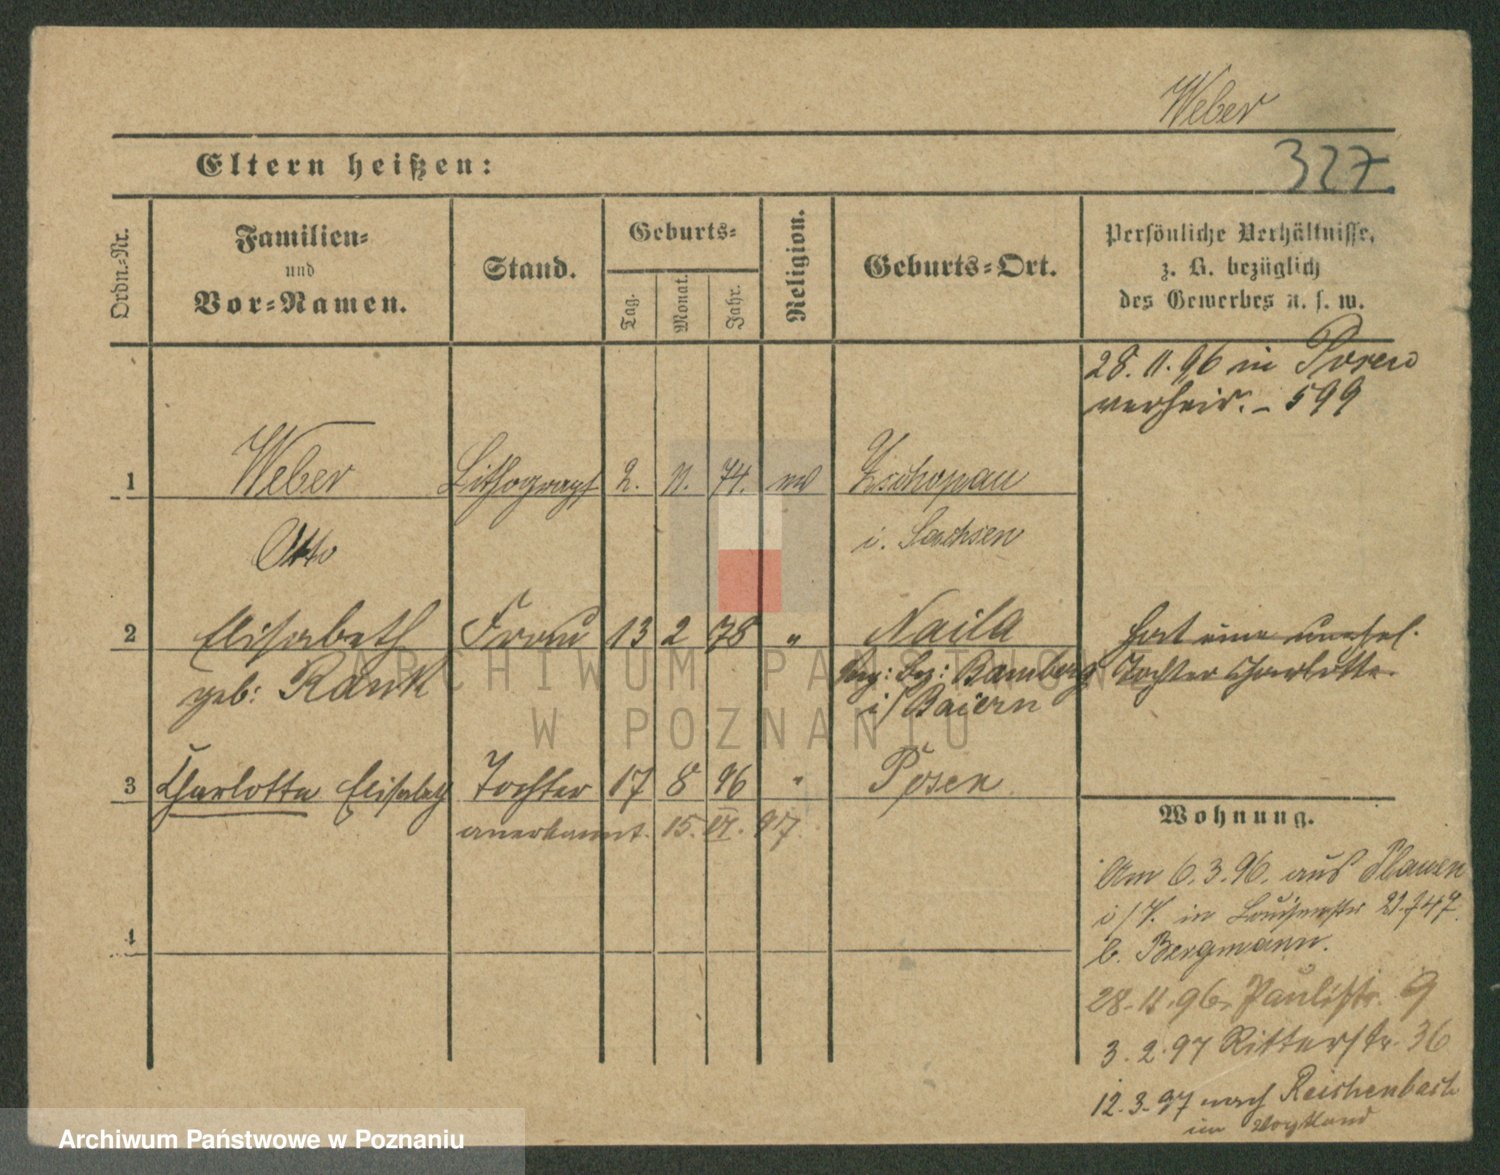 Weber
Eltern heißen:
327.
Ordn.-Nr.
Familien-
und
Vor-Namen.
Stand.
Geburts-
Tag.
Monat.
Jahr.
Religion.
Geburts-Ort.
Persönliche Verhältnisse,
z. B. bezüglich
des Gewerbes u. s. w.
28. 11. 96 in Posen
verheir. - 599
1 Weber Lithograph 2. 11. 74. Zschopau
Otto i. Sachsen
2 Elisabeth Frau 13 2 78 " Naila hat eine unehel.
geb: Rank Bamberg Tochter Charlotte.
i/Baiern
3 Charlotte Elisabeth Tochter 17 8 96 " Posen
anerkannt. 15. 97.
4
Wohnung.
Am 6. 3. 96. aus Plauen
i/V. in Louisenstr
b. Bergmann.
28. 11. 96. Paulistr. 9
3. 2. 97 Ritterstr. 36
12. 3. 97 nach Reichenbach
im Vogtland
ARCHIWUM PAŃSTWOWE
W POZNANIU
Archiwum Państwowe w Poznaniu